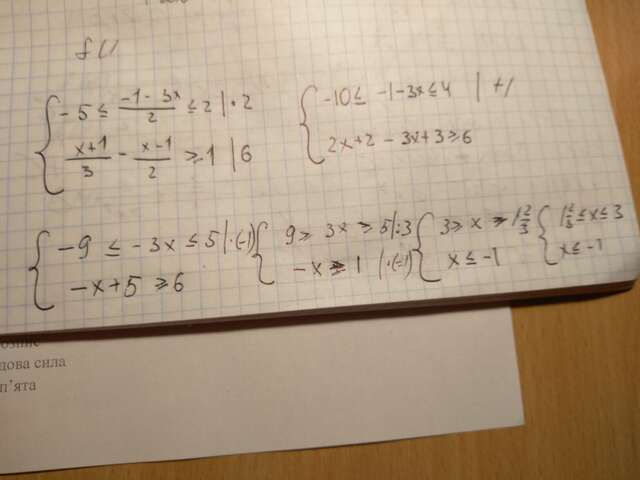 { -5 ≤ (-1-3x)/2 ≤ 2 | · 2
(x+1)/3 - (x-1)/2 ≥ 1 | 6
{ -10 ≤ -1-3x ≤ 4 | +1
2x+2 - 3x+3 ≥ 6
{ -9 ≤ -3x ≤ 5 | ·(-1)
-x+5 ≥ 6
{ 9 ≥ 3x ≥ 5 | :3
-x ≥ 1 | ·(-1)
{ 3 ≥ x ≥ 1 2/3
x ≤ -1
{ 1 2/3 ≤ x ≤ 3
x ≤ -1
дова сила
п'ята